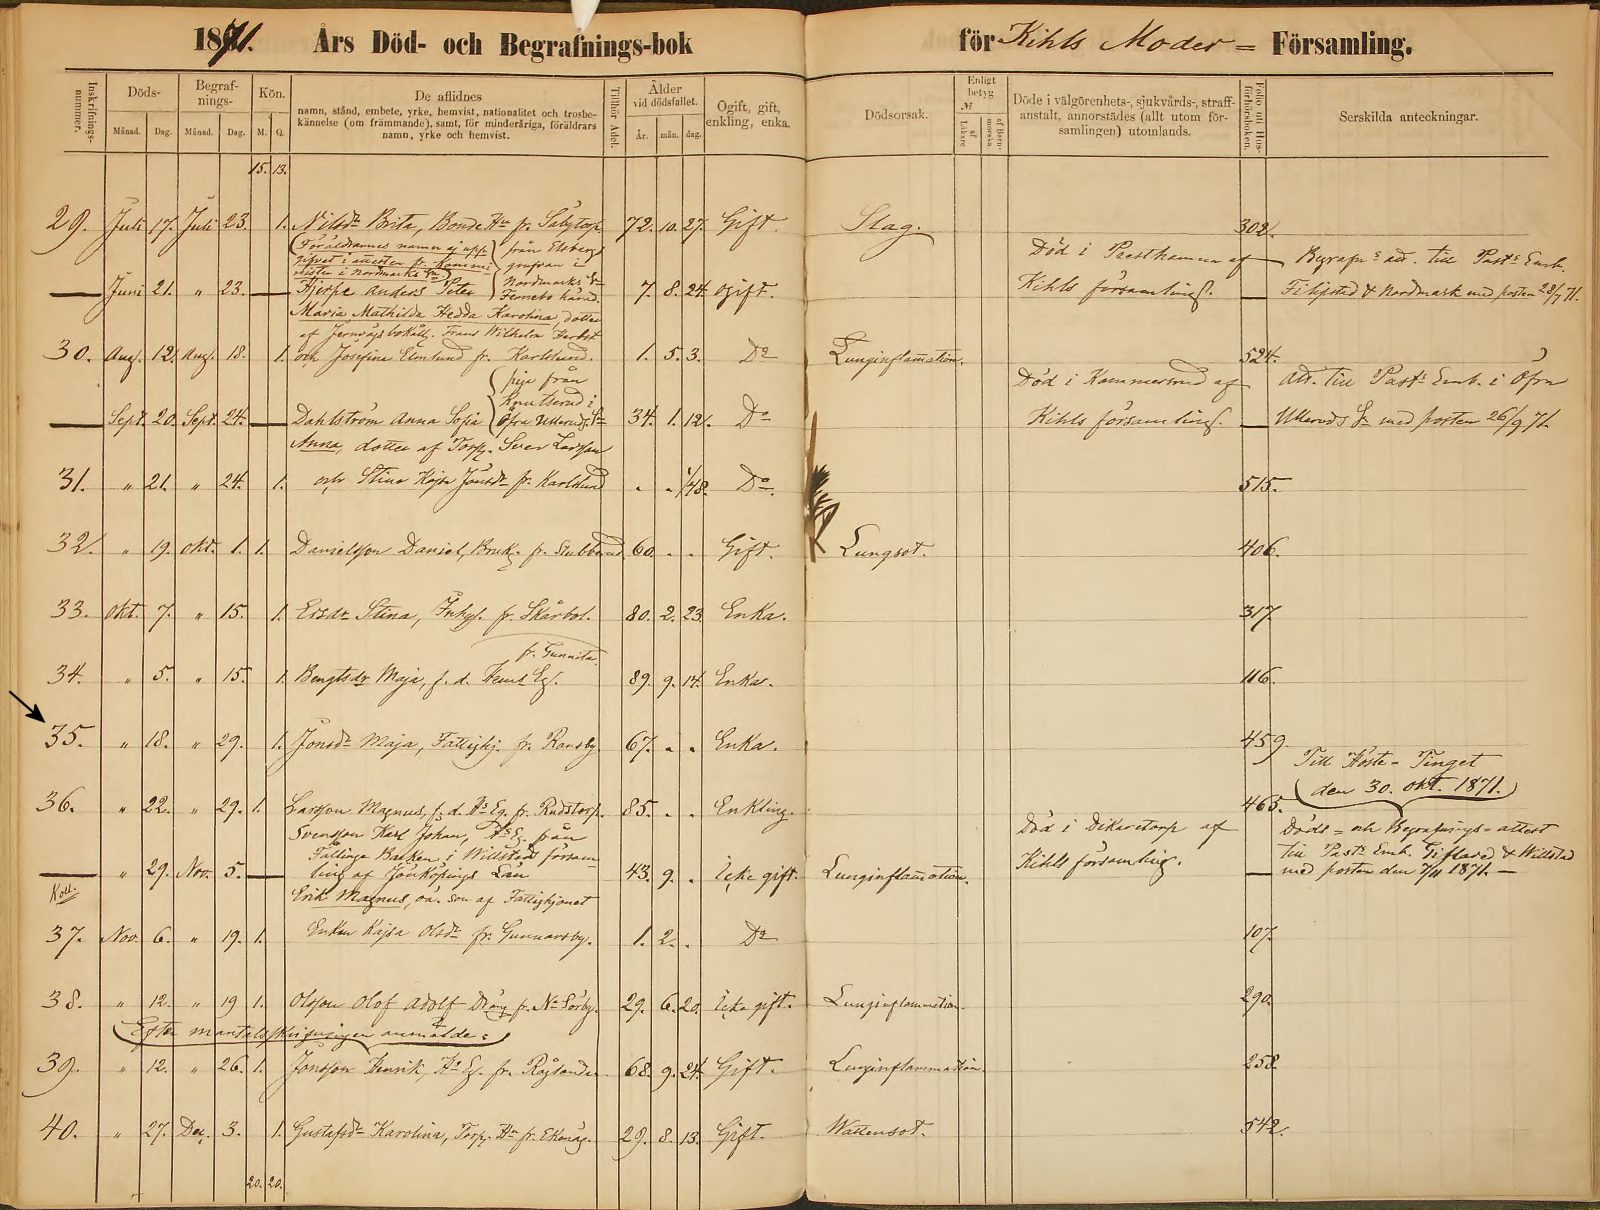 1871. Års Död- och Begrafnings-bok för Kihls Moder = Församling.
Inskrifnings-nummer.
Döds-
Månad. Dag.
Begraf-
nings-
Månad. Dag.
Kön.
M. Q.
De aflidnes
namn, stånd, embete, yrke, hemvist, nationalitet och trosbe-
kännelse (om främmande), samt, för minderåriga, föräldrars
namn, yrke och hemvist.
Tillhör Adel.
Ålder
vid dödsfallet.
År. mån. dag.
Ogift, gift,
enkling, enka.
Dödsorsak.
Enligt
betyg
af Läkare
af Barn-
morska.
Döde i välgörenhets-, sjukvårds-, straff-
anstalt, annorstädes (allt utom för-
samlingen) utomlands.
Folio uti Hus-
förhörsboken.
Serskilda anteckningar.
15. 13.
29. Juli 17. Juli 23. 1. Nilsdr Brita, Bonde Hu fr. Säbytorp 72. 10. 27. Gift. Slag. 302.
(Föräldrarnes namn ej upp-
gifvet i attesten fr.
från
i
Nordmarks Sn
Fernebo härad.
Juni 21. " 23. Hjerpe Anders Peter 7. 8. 24. ogift.
Död i Presthammar af
Kihls församling.
till Pasts Emb.
Filipstad & Nordmark med posten 28/7 71.
Maria Mathilda Hedda Karolina, dotter
af Frans Wilhelm
30. Aug. 12. Aug. 18. 1. och Josefina fr. Karlslund. 1. 5. 3. Do Lunginflamation. 524.
(pija från
Knutserud i
Sept. 20. Sept. 24. Dahlström Anna Sofia Öfra Ulleruds Sn 34. 1. 12. Do
Död i Kammersrud af
Kihls församling.
Att. till Pasts Emb. i Öfra
Ulleruds Sn med posten 26/9 71.
Anna, dotter af Torp. Sven Larsson
31. " 21. " 24. 1. och Stina Kajsa Jonsdr fr. Karlslund . . 1/48. Do 515.
32. " 19. okt. 1. 1. Danielsson Daniel, Bruk. fr. Stubberud 60. . . Gift. Lungsot. 406.
33. okt. 7. " 15. 1. Ersdr Stina, Inhys. fr. Skårbol. 80. 2. 23. Enka. 317.
fr. Gunnita.
34. " 5. " 15. 1. Bengtsdr Maja, f. d. Hems Eg. 89. 9. 14. Enka. 116.
35. " 18. " 29. 1. Jonsdr Maja, Fattighj. fr. Ransby 67. . . Enka. 459.
Till Höste-Tinget
(den 30. okt. 1871.)
36. " 22. " 29. 1. Larsson Magnus, f. d. Hs Eg. fr. Rudstorp. 85. . . Enkling. 465.
Svensson Karl Johan, Hs Eg. från
Fällinge Backen i Willstads försam-
ling af Jönköpings Län
" 29. Nov. 5. 43. 9. . Icke gift. Lunginflamation.
Död i Dikaretorp af
Kihls församling.
Döds= och Begrafnings=attest
till Pasts Emb. & Willstad
med posten den 7/11 1871.
Erik Magnus, oä. son af Fattighjonet
37. Nov. 6. " 19. 1. Enkan Kajsa Olsdr fr. Gunnarsby. 1. 2. . Do 107.
38. " 12. " 19 1. Olsson Olof Adolf Dräng fr. Na Sörby. 29. 6. 20. Icke gift. Lunginflammation. 290.
(Efter mantalsskrifningen anmälde:)
39. " 12. " 26. 1. Jonsson Henrik, Hs Eg. fr. 68. 9. 24. Gift. Lunginflammation. 258.
40. " 27. Dec. 3. 1. Gustafsdr Karolina, Torp. Hu fr. Ekenäs. 28. 8. 13. Gift. Wattensot. 542.
20. 20.